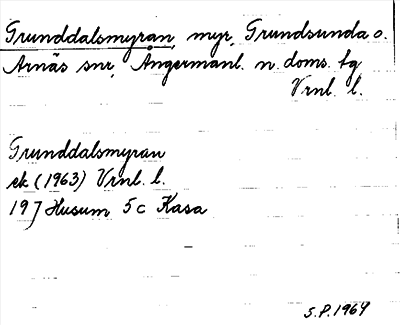 Grunddalsmyran, myr, Grundsunda o.
Arnäs snr, Ångermanl. n. doms. fg
Vrnl. l.
Grunddalsmyran
ek (1963) Vrnl. l.
19J Husum 5c Kasa
S.P. 1969